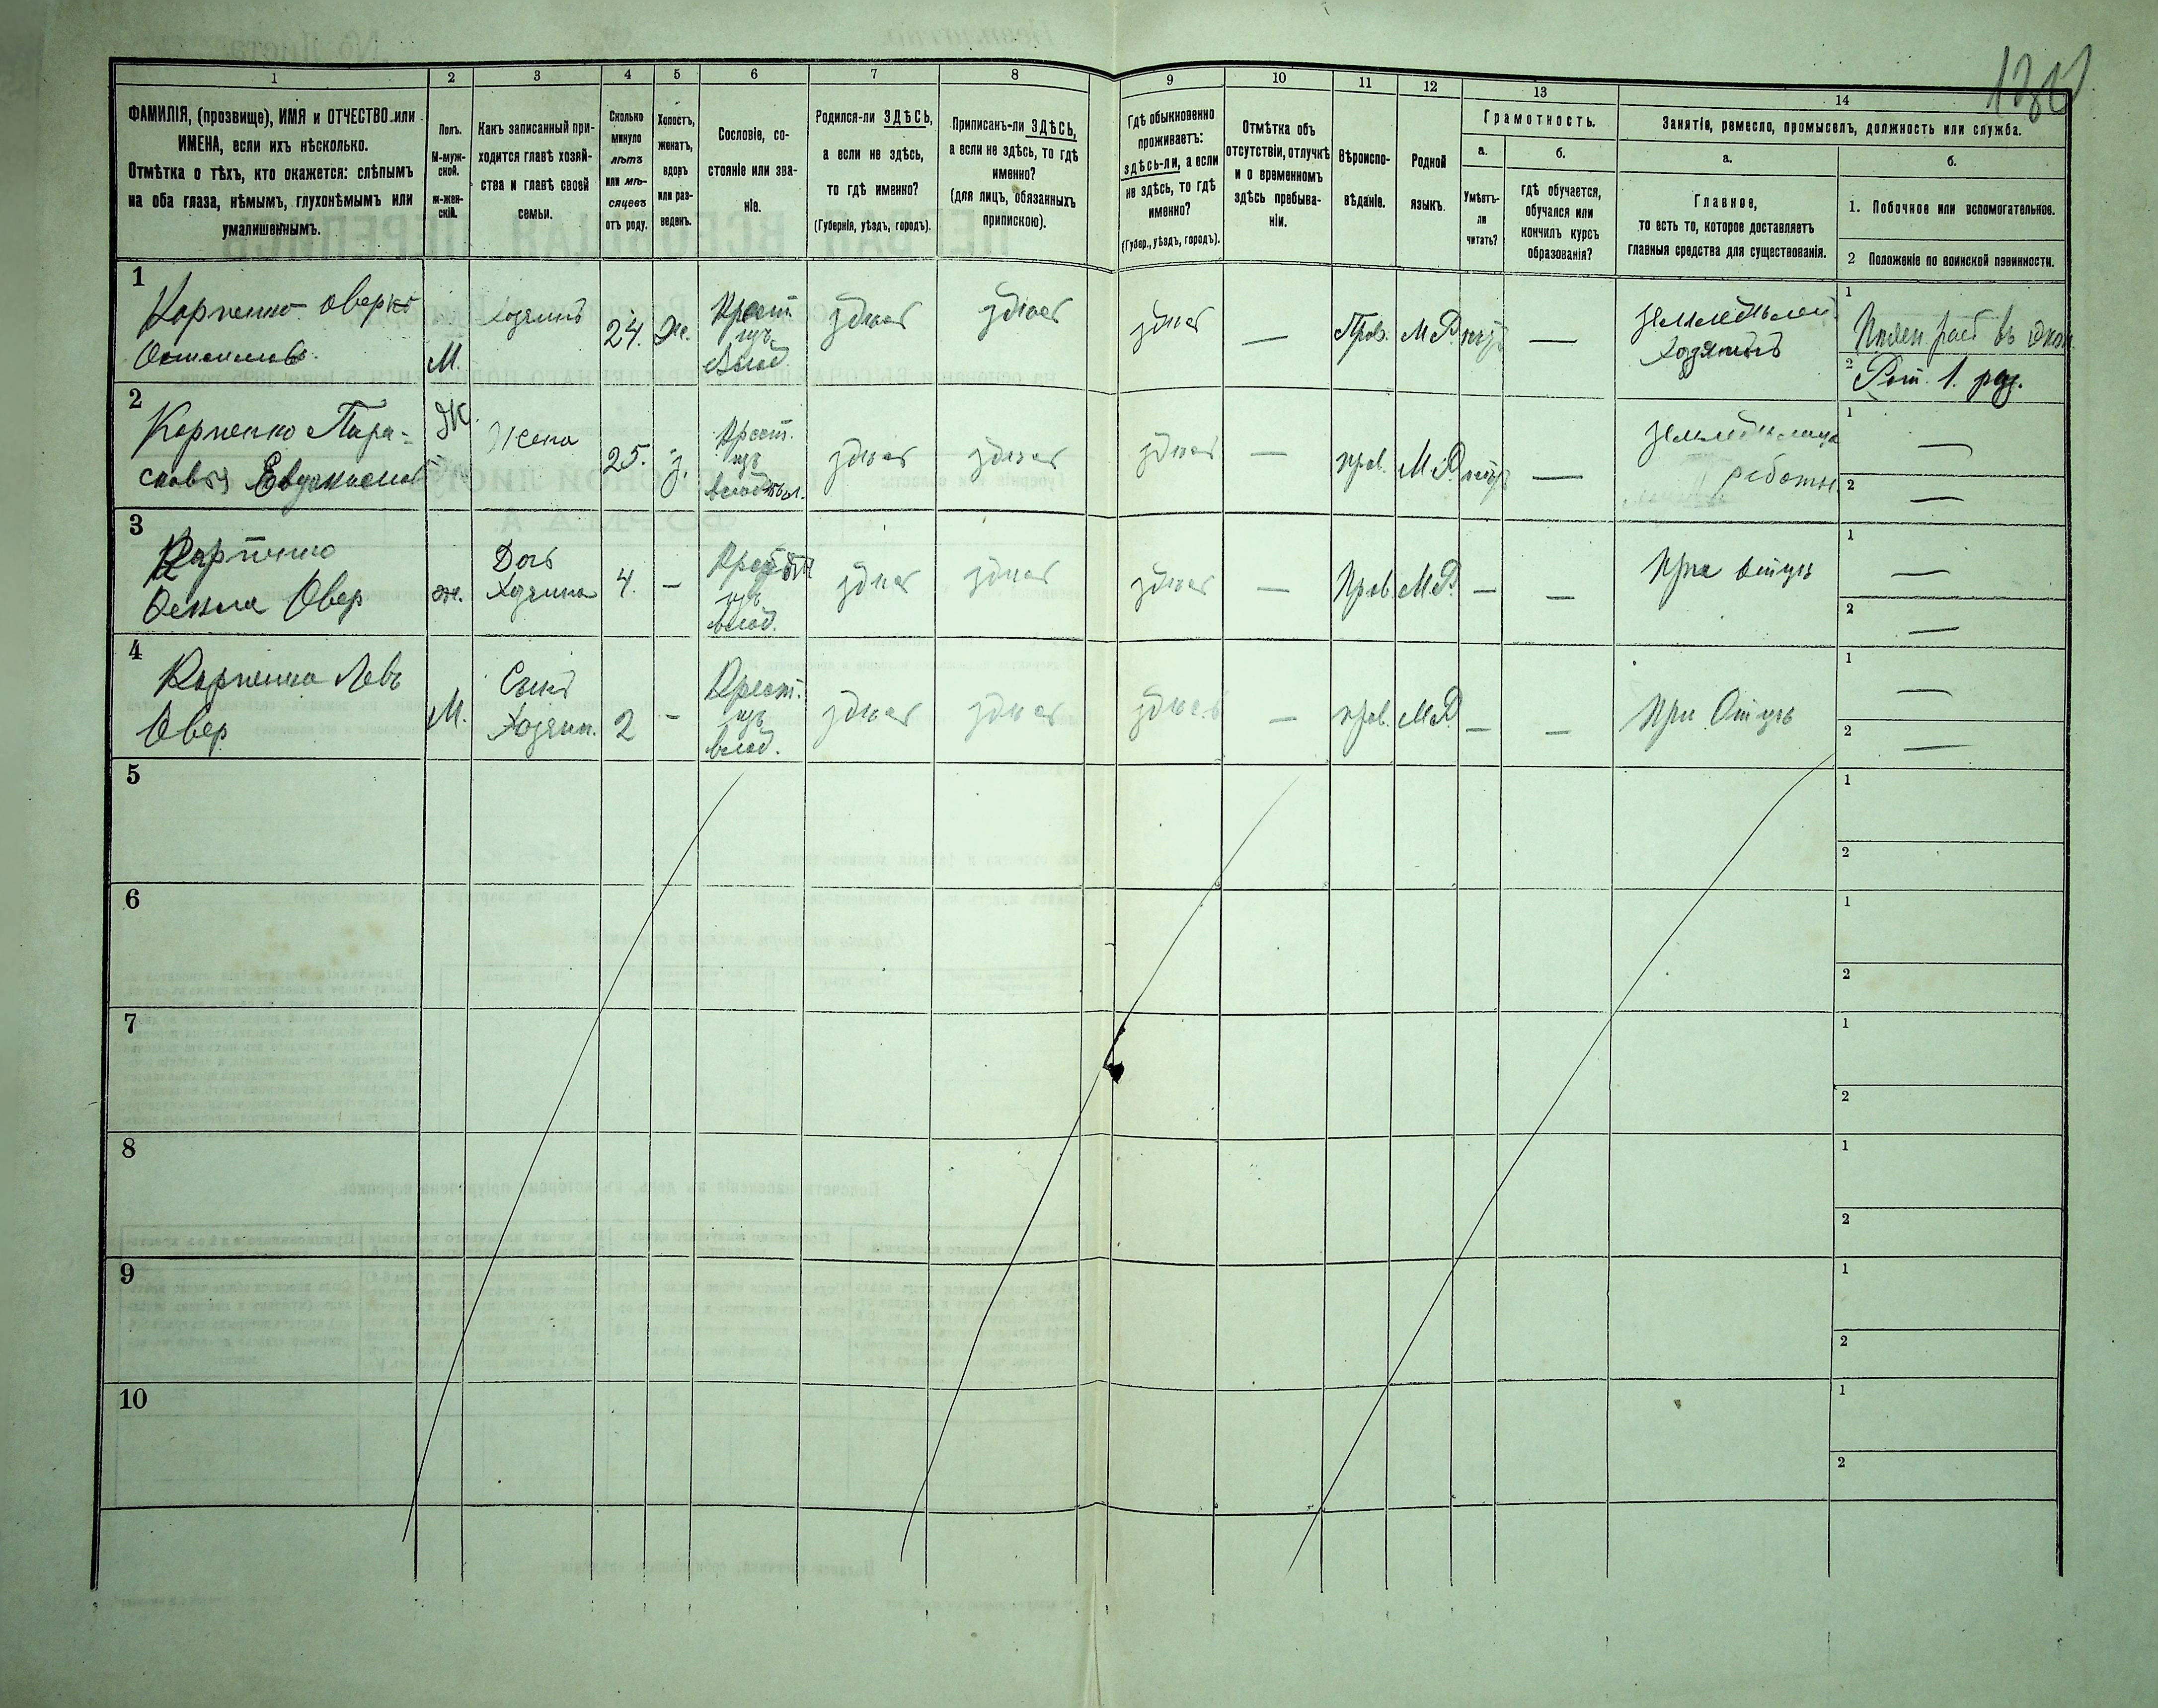 1 2 3 4 5 6 7 8 9 10 11 12 13 14
ФАМИЛІЯ, (прозвище), ИМЯ и ОТЧЕСТВО или
ИМЕНА, если ихъ нѣсколько.
Отмѣтка о тѣхъ, кто окажется: слѣпымъ
на оба глаза, нѣмымъ, глухонѣмымъ или
умалишеннымъ.
Полъ.
М-муж-
ской.
ж-жен-
скій.
Какъ записанный при-
ходится главѣ хозяй-
ства и главѣ своей
семьи.
Сколько
минуло
лѣтъ
или мѣ-
сяцевъ
отъ роду.
Холостъ,
женатъ,
вдовъ
или раз-
веденъ.
Сословіе, со-
стояніе или зва-
ніе.
Родился-ли ЗДѢСЬ,
а если не здѣсь,
то гдѣ именно?
(Губернія, уѣздъ, городъ).
Приписанъ-ли ЗДѢСЬ,
а если не здѣсь, то гдѣ
именно?
(для лицъ, обязанныхъ
припискою).
Гдѣ обыкновенно
проживаетъ:
здѣсь-ли, а если
не здѣсь, то гдѣ
именно?
(Губер., уѣздъ, городъ).
Отмѣтка объ
отсутствіи, отлучкѣ
и о временномъ
здѣсь пребыва-
ніи.
Вѣроиспо-
вѣданіе.
Родной
языкъ.
Грамотность.
а.
Умѣетъ-
ли
читать?
б.
гдѣ обучается,
обучался или
кончилъ курсъ
образованія?
Занятіе, ремесло, промыселъ, должность или служба.
а.
Главное,
то есть то, которое доставляетъ
главныя средства для существованія.
б.
1. Побочное или вспомогательное.
2 Положеніе по воинской повинности.
1
Карпенко Оверко
М.
Хозяинъ
24.
Ж.
Крест.
изъ
влад.
здѣсь
здѣсь
здѣсь
—
Прав.
М Р
—
Хозяинъ
1
2 Рат. 1. раз.
2
Карпенко Пара-
Ж
Жена
25.
З.
Крест.
изъ
здѣсь
здѣсь
здѣсь
—
прав.
М Р
—
1 —
2 —
3
Карпенко
Фекла Овер
ж.
Дочь
Хозяина
4.
—
изъ
влад.
здѣсь
здѣсь
здѣсь
—
Прав.
М Р.
—
—
При отцѣ
1 —
2 —
4
Карпенко Левъ
Овер
М.
Сынъ
Хозяин.
2
—
Крест.
изъ
влад.
здѣсь
здѣсь
здѣсь
—
прав.
М Р
—
—
При Отцѣ
1 —
2 —
5
1
2
6
1
2
7
1
2
8
1
2
9
1
2
10
1
2